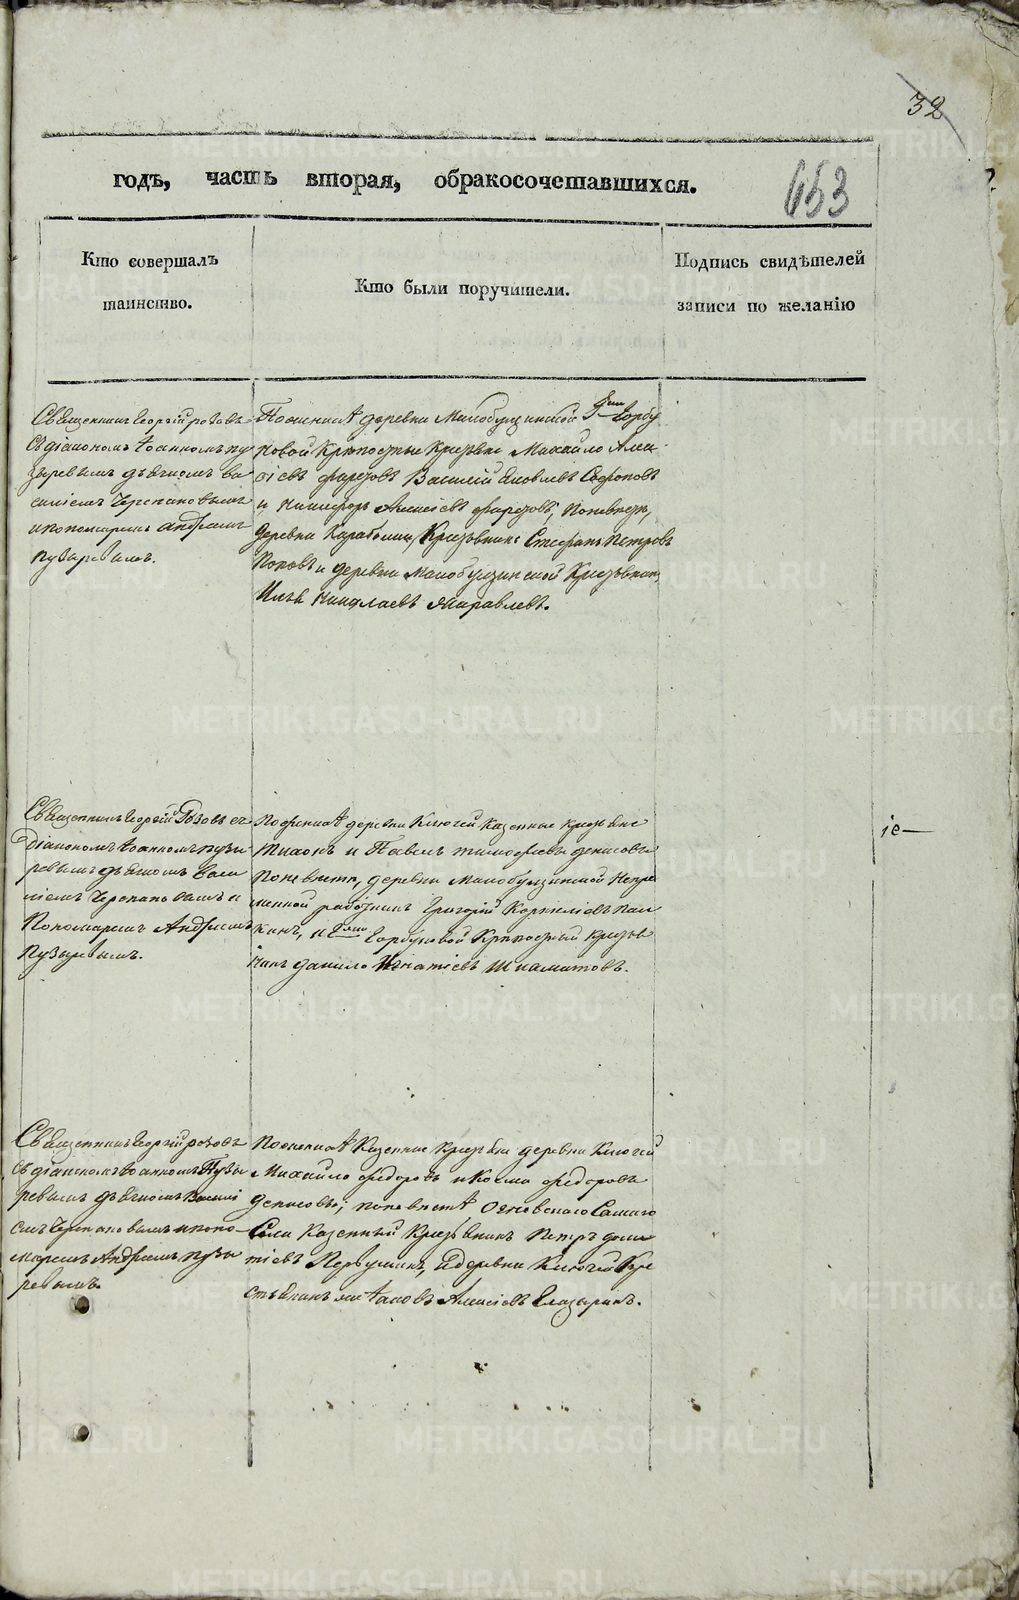 32
годъ, часть вторая, обракосочетавшихся.
653
Кто совершалъ
таинство.
Кто были поручители.
Подпись свидѣтелей
записи по желанію
Священникъ Георгій розовъ
съ діакономъ Іоанномъ пу
зыревымъ дьячкомъ ва
силіемъ Черепановымъ
и пономаремъ андреемъ
пузыревымъ.
Поженихѣ деревни Малобулзинской Горбу
новой Крѣпостные Крестьяне Михайло Алек
сіевъ Василій Яковлевъ Софоновъ
и Никифоръ Алексіевъ поневѣстѣ,
деревни Крестьянинъ Стефанъ Петровъ
Поповъ и деревни Малобулзинской Крестьянинъ
Илья Николаевъ Журавлевъ.
Священникъ Георгій Розовъ съ
Діакономъ Іоанномъ пузы
ревымъ дьячкомъ Васи
ліемъ Черепановымъ и
Пономаремъ Андреемъ
Пузыревымъ.
Поженихѣ деревни Ключей казенные крестьяне
Тихонъ и Павелъ тимофеевы денисовы
поневѣстѣ, деревни Малобулзинской Непре
менной работникъ Григорій Корниліевъ
и Горбуновой Крѣпостный крестья
нинъ данило Игнатіевъ
је
Священникъ Георгій розовъ
съ діакономъ Іоанномъ Пузы
ревымъ дьячкомъ Василі
емъ Черепановымъ и поно
маремъ Андреемъ пузы
ревымъ.
Поженихѣ Казенные Крестьяне деревни Ключей
Михайло федоровъ и Косма федоровъ
денисовы; поневѣстѣ, Самаго
Села Казенный Крестьянинъ Петръ
Первушинъ, и деревни Ключей Кре
стьянинъ Алексіевъ Елазаринъ.
METRIKI.GASO-URAL.RU